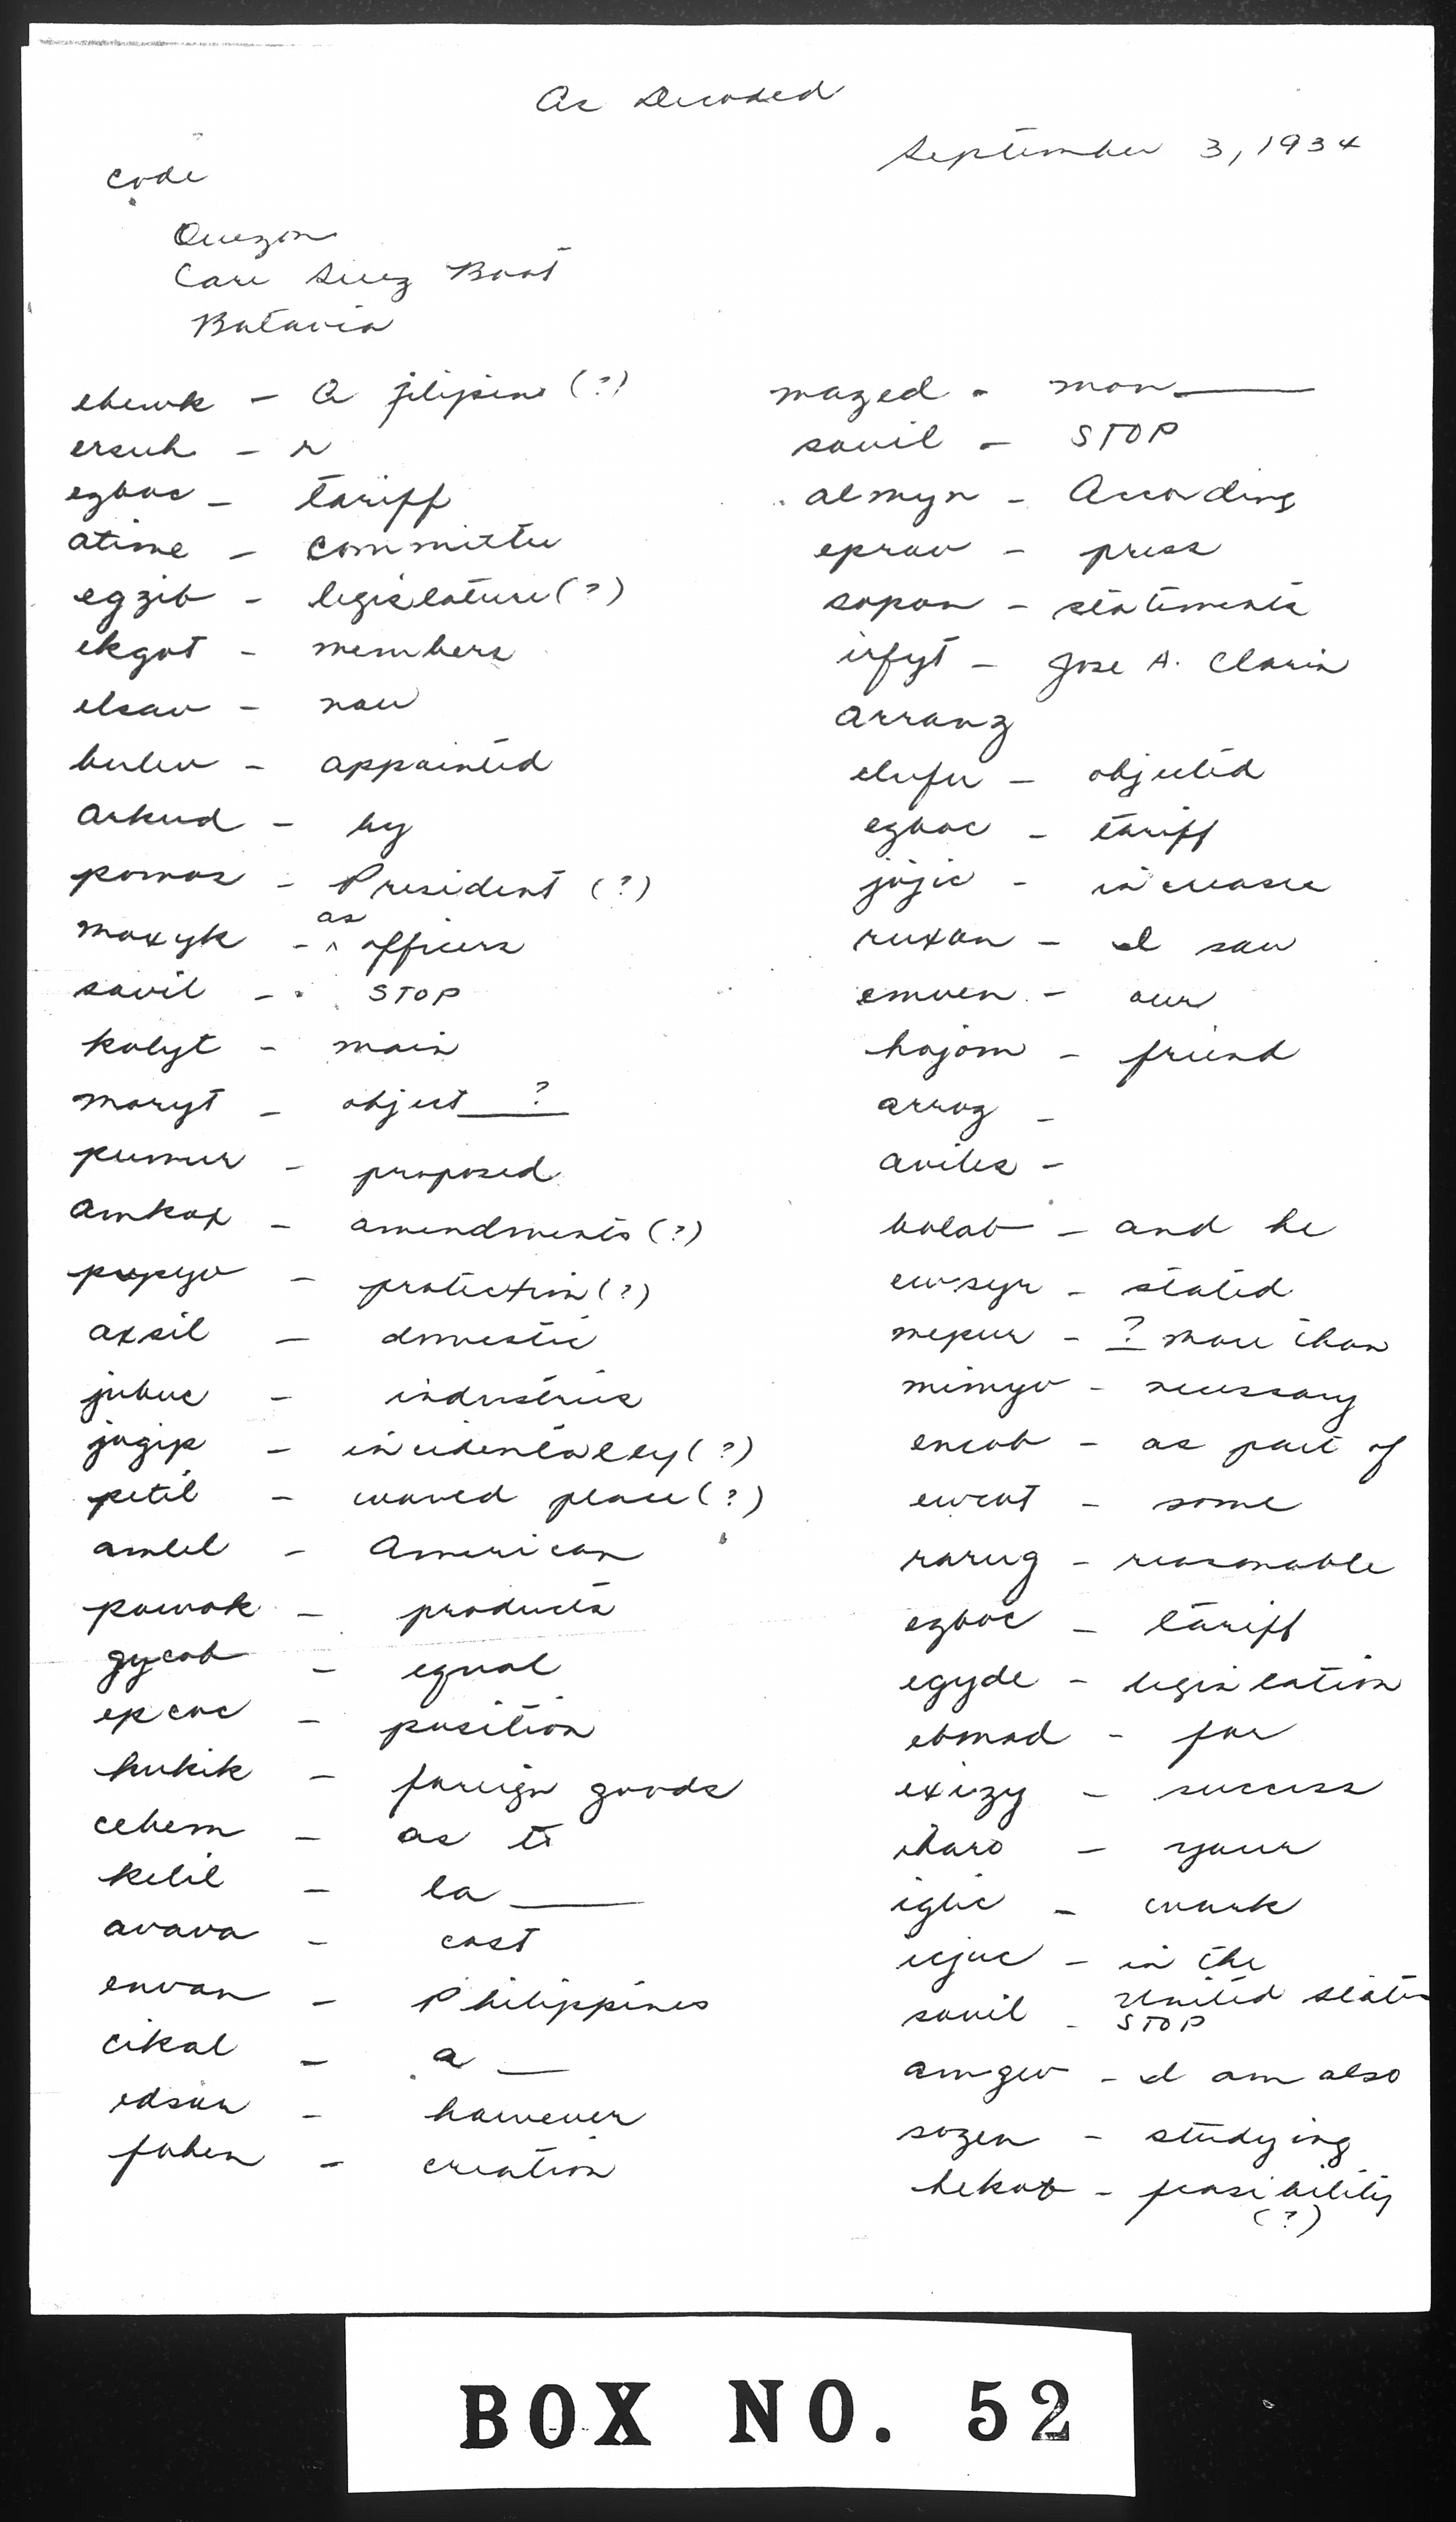 As Decoded
September 3, 1934
Code
Quezon
Care Suez Boat
Batavia
ebewk - A filipino (?)
ersuh - r
egboc - tariff
atime - committee
egzib - legislature (?)
ekgot - members
elsav - now
bulev - appointed
Arkud - by
pomos - President (?)
moxyk - as officers
savil - STOP
kolyt - main
moryt - object ___?___
pumur - proposed
Amkox - amendments (?)
pupyv - protection (?)
axsil - domestic
jubuc - industries
jugip - incidentally (?)
petil - waved place (?)
amlel - American
powok - products
gycob - equal
epcoc - position
hukik - foreign goods
cehem - as to
kelil - la ____
avava - cost
envan - Philippines
cikal - a ___
edsun - however
fuhen - creation
mazed - mon____
savil - STOP
almyn - According
eprav - press
sopon - statements
irfyt - Jose A. Clarin
Arranz
elufu - objected
egboc - tariff
jujic - increase
ruxan - I saw
emven - our
hojom - friend
arroz -
aviles -
bolab - and he
ewsyr - stated
mepur - ? more than
mimyv - necessary
encob - as part of
ewcut - some
rarug - reasonable
egboc - tariff
egyde - legislation
ebmod - for
exizy - success
iharo - your
iglic - work
icjuc - in the
United States
savil - STOP
amgev - I am also
sozen - studying
hekob - feasibility
(?)
BOX NO. 52